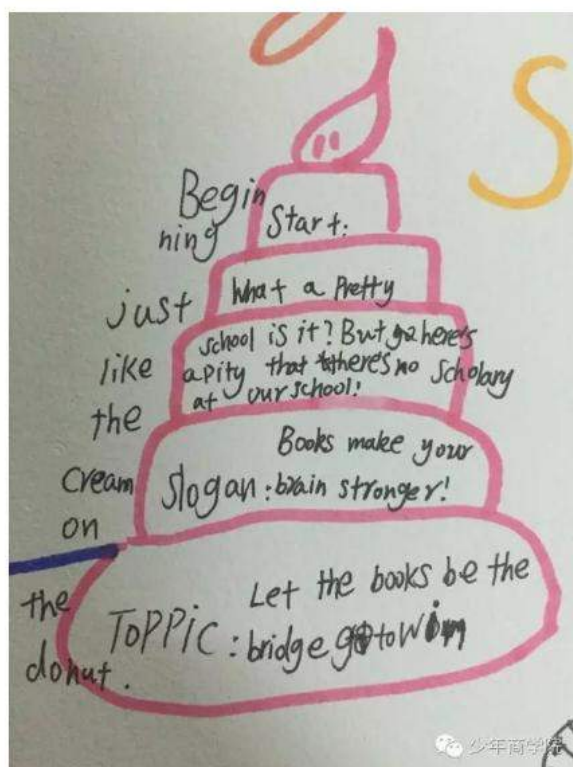 S
Begin
ning
just
like
the
cream
on
the
donut.
Start:
What a Pretty
school is it? But there's
a pity that there's no scholary
at our school!
Books make your
slogan: brain stronger!
Let the books be the
ToPPic: bridge to win
少年商学院